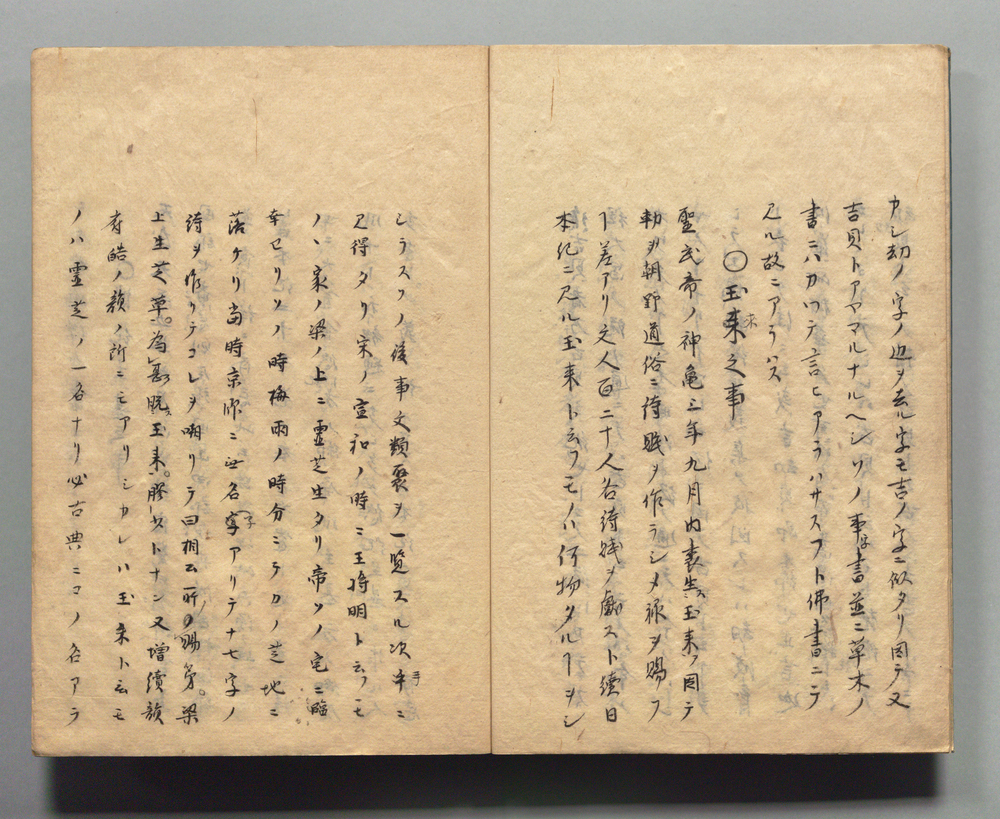 カシ劫ノ字ノ辺ヲ去ル字モ吉ノ字ニ似タリ因テ又
吉貝トアヤマルナルヘシソノ事字書並ニ草木ノ
書ニハカツテ言ヒアラハサスフト佛書ニテ
見ル故ニアラハス
○玉来之事
聖武帝ノ神亀三年九月内裏生玉来ヲ因テ
勅ヲ朝野道俗ニ詩賦ヲ作ラシメ禄ヲ賜フ
ヿ差アリ文人百二十人各詩賦ヲ献スト續日
本紀ニ見ル玉来ト云フモノハ何物タルヿヲシ
シラスソノ後事文類聚ヲ一覧スル次手ニ
見得タリ宋ノ宣和ノ時ニ王将明ト云フモ
ノヽ家ノ梁ノ上ニ霊芝生タリ帝ソノ宅ニ臨
幸セリソノ時梅雨ノ時分ニテカノ芝地ニ
落ケリ当時京師ニ無名字アリテ十七字ノ
詩ヲ作リテコレヲ嘲リテ曰相公所賜第梁
上生芝草為甚脱玉来膠少トナン又増續韻
府皓ノ韻ノ所ニモアリシカレハ玉来ト云モ
ノハ霊芝ノ一名ナリ必古典ニコノ名アラ